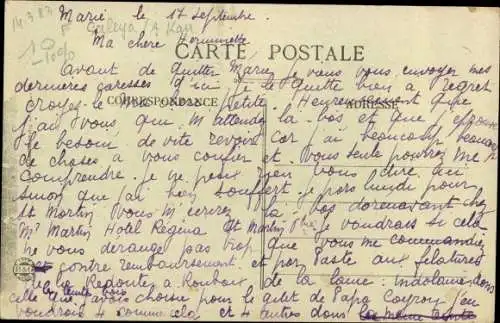 Marie le 17 Septembre
14.3.83
Ma chere
CARTE POSTALE
avant de quitter Marie je veux vous envoyer mes
dernieres caresses je le quitte bien a regret
CORRESPONDANCE
ADRESSE
croyez le ma chere petite. Heureusement que
j'ai vous que m'attendez la-bas et que j'eprouve
le besoin de vite revoir car j'ai beaucoup beaucoup
de choses a vous confier et vous seule pouvez me
comprendre. je ne peux rien vous dire ici
sinon que j'ai bien souffert. je pars lundi pour
St Martin vous m'ecrirez la bas dorenavant chez
Mr Martin Hotel Regina St Martin je voudrais si cela
ne vous derange pas trop que vous me commandiez
contre remboursement et par Poste aux filatures
de la Redoute a Roubaix de la laine: Indolaine dans
celle que j'avais choisie pour le gilet de Papa j'en
voudrais 4 comme cela et 4 autres dans la meme teinte